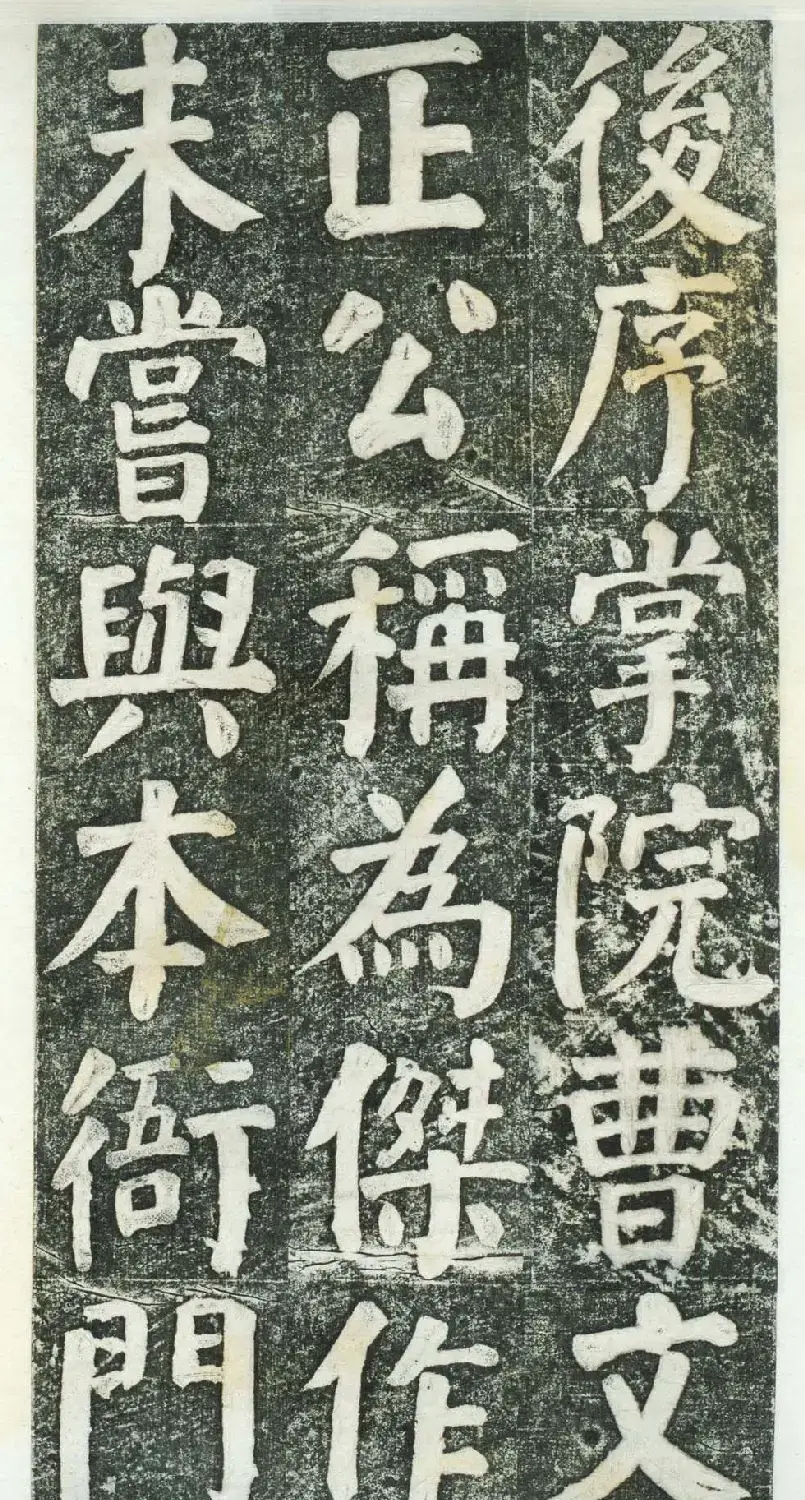 後序掌院曹文
正公稱為傑作
未嘗與本衙門